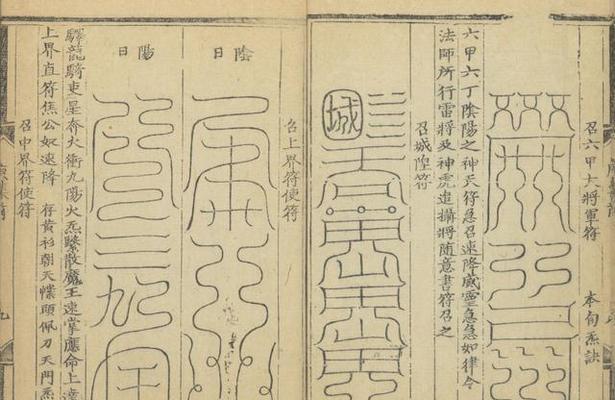 召六甲大將軍符
本旬炁訣
六甲六丁陰陽之神兵符急召速降威靈急急如律令
法師所行雷將及神虎追攝將隨意書符召之
召城隍符
城
召上界符使符
陰日
陽日
驛龍騎吏星奔火衝九陽火炁縶散魔王速掌應命上達
上界直符焦公奴速降
存黃衫朝天幞頭佩刀天門炁
召中界符使符
九